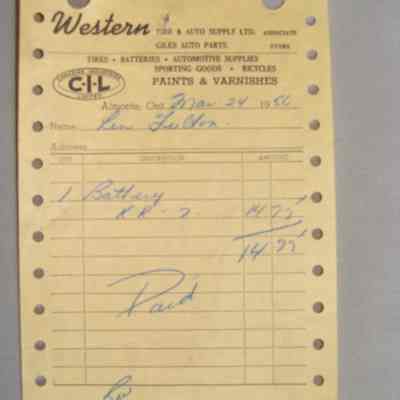 Western TIRE & AUTO SUPPLY LTD. ASSOCIATE
GILES AUTO PARTS. STORE
TIRES • BATTERIES • AUTOMOTIVE SUPPLIES
SPORTING GOODS • BICYCLES
CANADIAN INDUSTRIES LIMITED
C-I-L PAINTS & VARNISHES
Almonte, Ont Mar 24 1956
Name Ken Fulton
Address
QTY. DESCRIPTION AMOUNT
1 Battery
KR-7 14 75
14 75
Paid